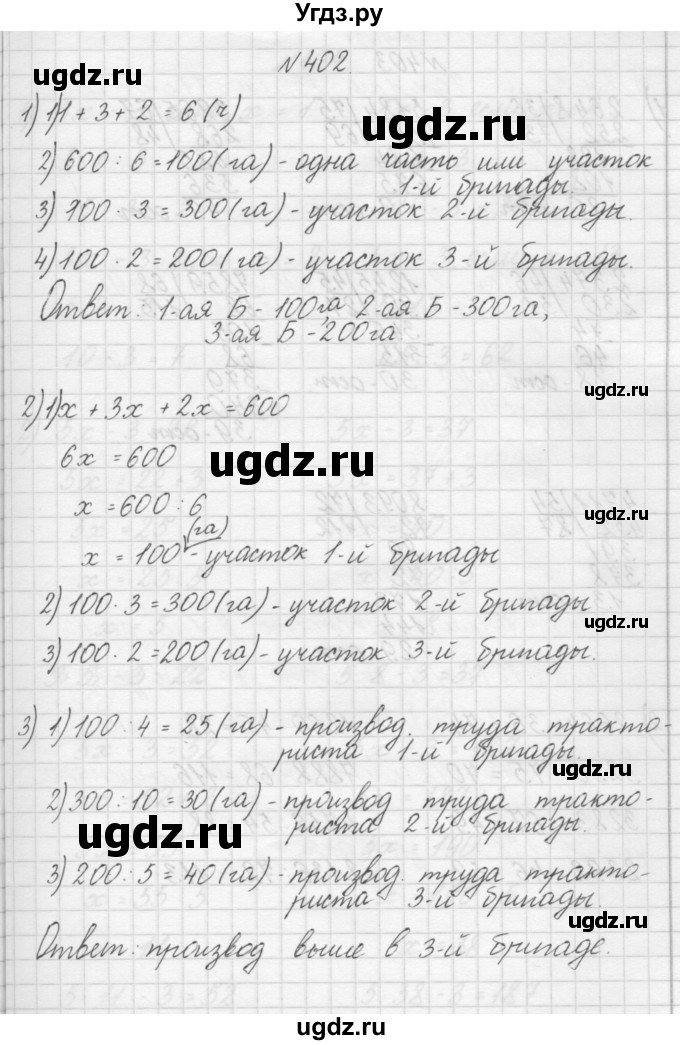 Угдз.ру
№402.
1) 1) 1 + 3 + 2 = 6 (ч)
2) 600 : 6 = 100 (га) - одна часть или участок
1-й бригады.
3) 100 · 3 = 300 (га) - участок 2-й бригады.
4) 100 · 2 = 200 (га) - участок 3-й бригады.
Ответ: 1-ая Б - 100га, 2-ая Б - 300га,
3-ая Б - 200га
2) 1) x + 3x + 2x = 600
6x = 600
x = 600 : 6
x = 100 (га) - участок 1-й бригады
2) 100 · 3 = 300 (га) - участок 2-й бригады
3) 100 · 2 = 200 (га) - участок 3-й бригады.
3) 1) 100 : 4 = 25 (га) - производ. труда тракто-
риста 1-й бригады.
2) 300 : 10 = 30 (га) - производ труда тракто-
риста 2-й бригады.
3) 200 : 5 = 40 (га) - производ. труда тракто-
риста 3-й бригады.
Ответ: производ выше в 3-й бригаде.
ugdz.ru
ugdz.ru
ugdz.ru
ugdz.ru
ugdz.ru
ugdz.ru
ugdz.ru
ugdz.ru
ugdz.ru
ugdz.ru
ugdz.ru
ugdz.ru